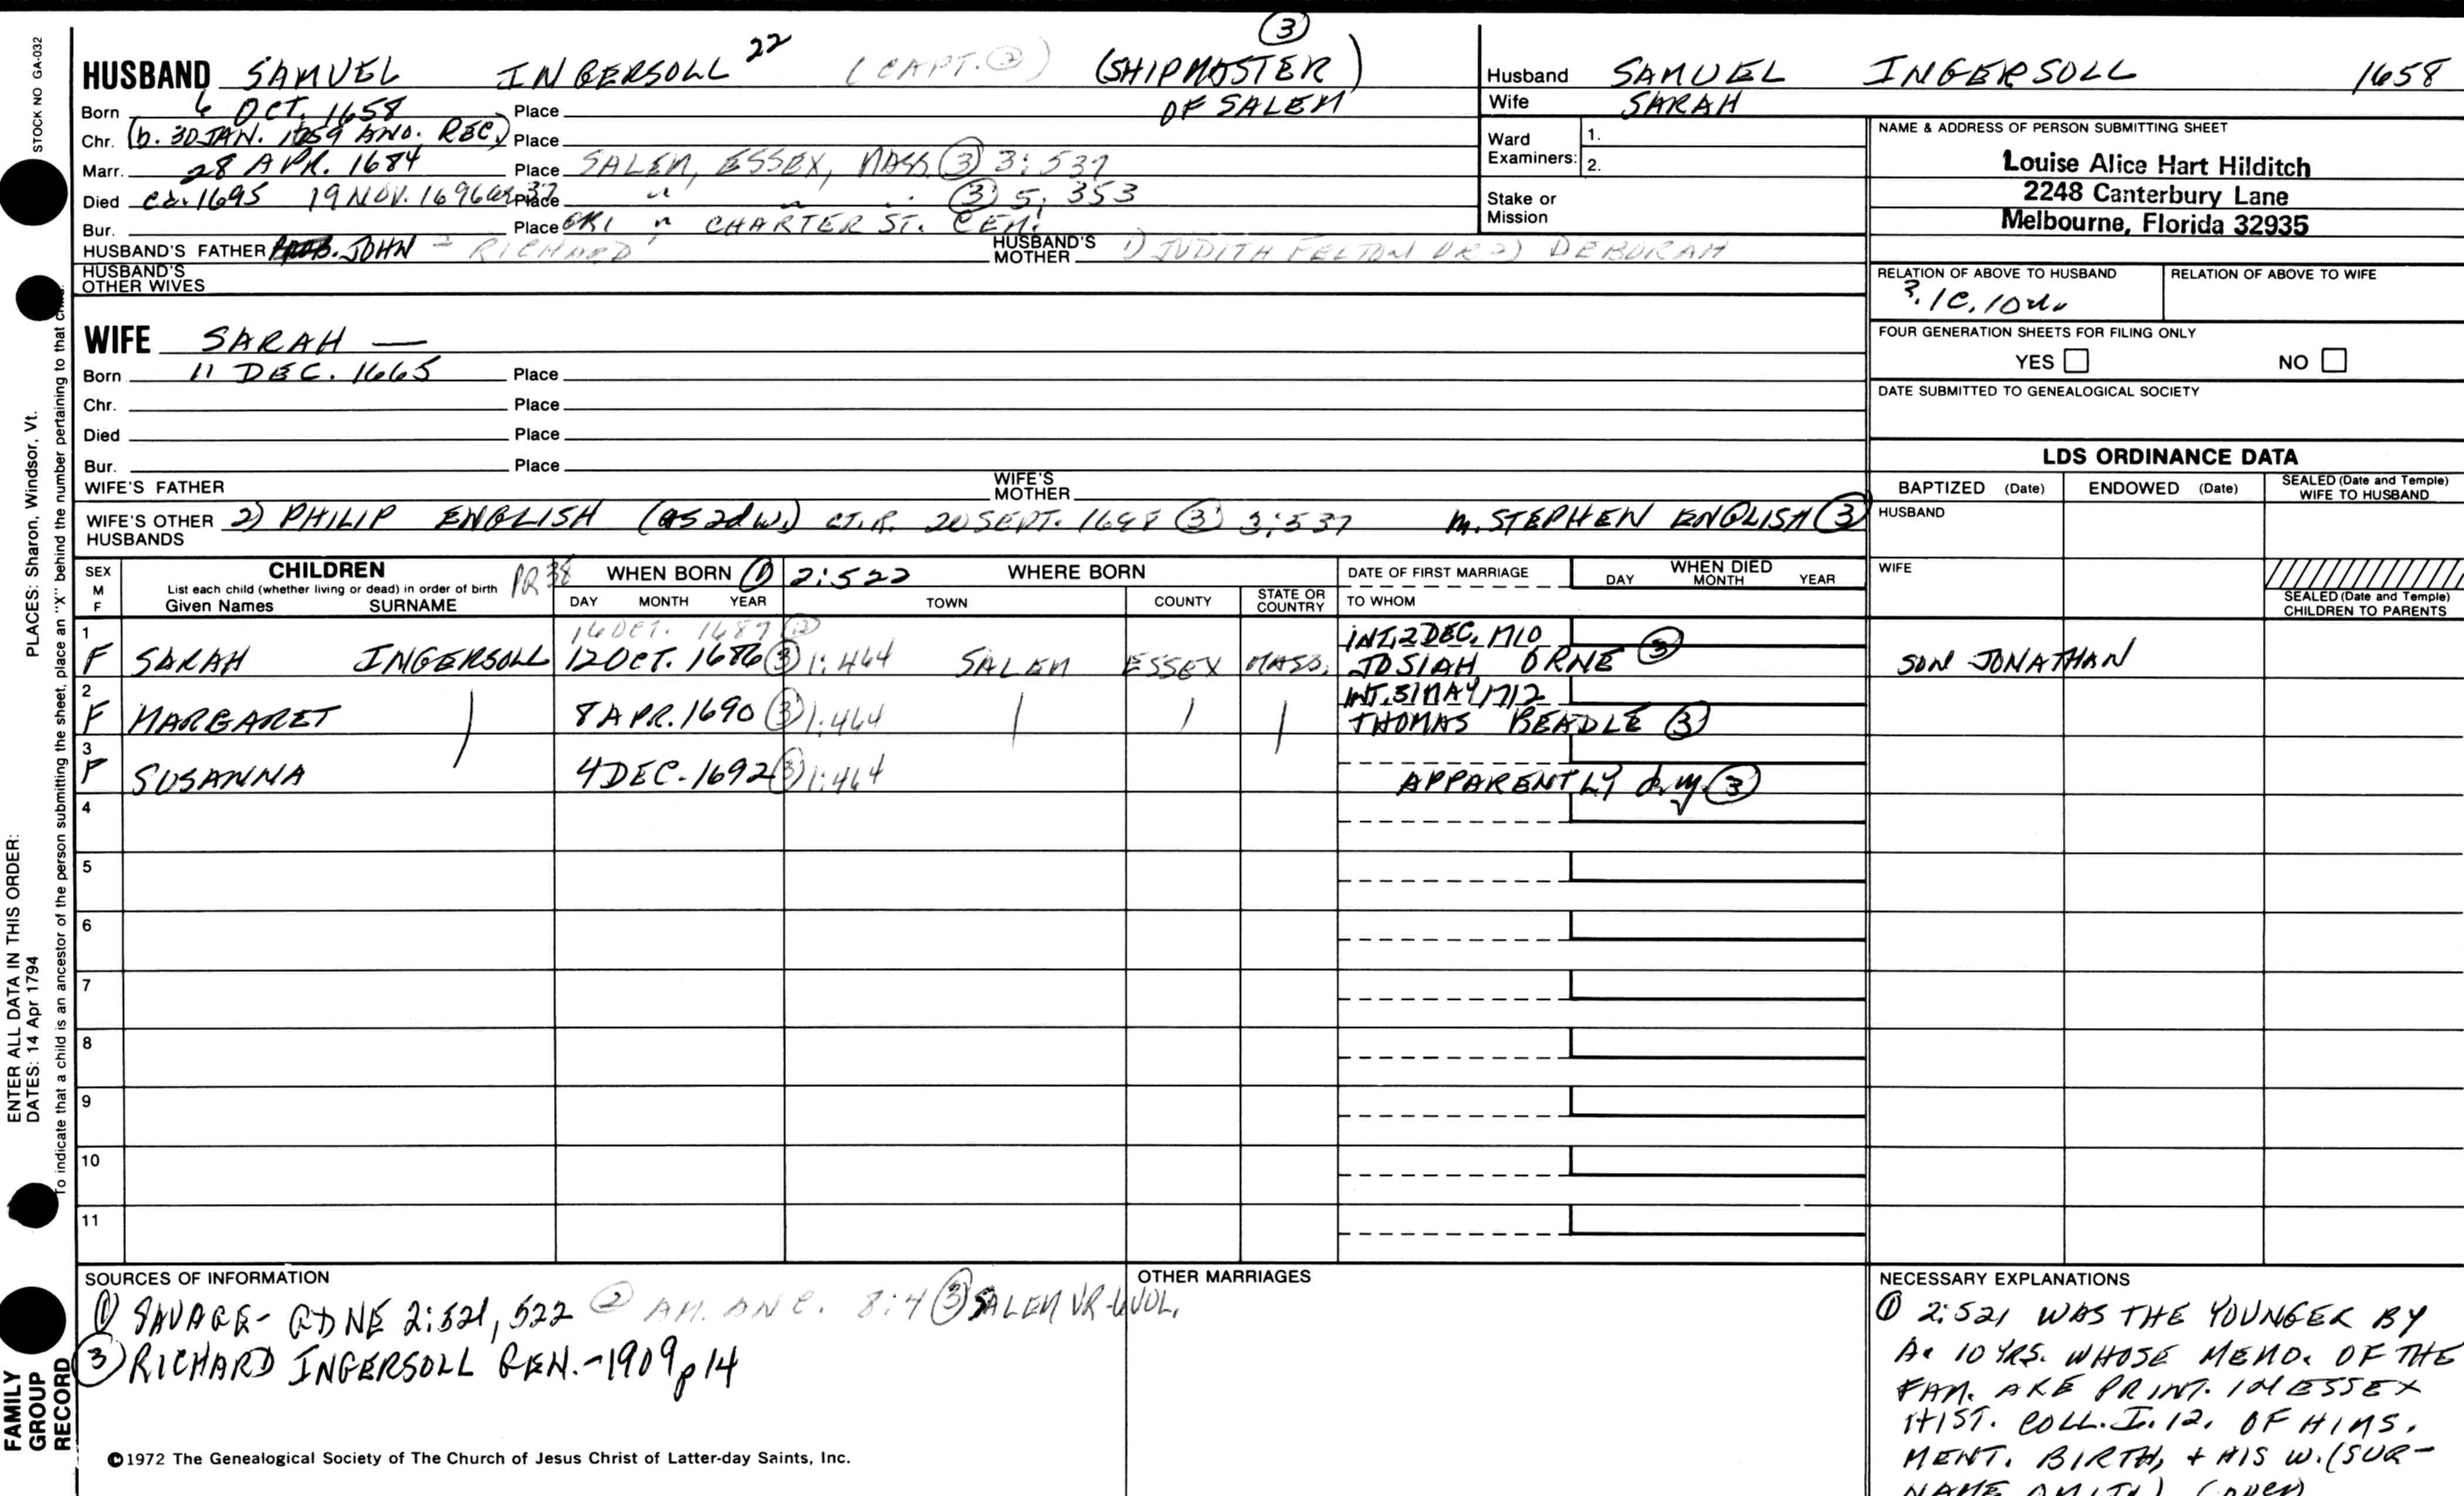 STOCK NO GA-032
PLACES: Sharon, Windsor, Vt.
ENTER ALL DATA IN THIS ORDER:
DATES: 14 Apr 1794
To indicate that a child is an ancestor of the person submitting the sheet, place an "X" behind the number pertaining to that child.
FAMILY GROUP RECORD
③
HUSBAND SAMUEL INGERSOLL 22 (CAPT. ②) (SHIPMASTER)
OF SALEM
Born 6 OCT. 1658 Place
Chr. (b. 30 JAN. 1659 ANO. REC.) Place
Marr. 28 APR. 1684 Place SALEM, ESSEX, MASS ③ 3:537
Died ca. 1695 19 NOV. 1696 37 Place " " ③ 5, 353
Bur. Place GR1 " CHARTER ST. CEM.
HUSBAND'S FATHER PROB. JOHN - RICHARD HUSBAND'S MOTHER 1) JUDITH FELTON OR 2) DEBORAH
HUSBAND'S OTHER WIVES
WIFE SARAH —
Born 11 DEC. 1665 Place
Chr. Place
Died Place
Bur. Place
WIFE'S FATHER WIFE'S MOTHER
WIFE'S OTHER HUSBANDS 2) PHILIP ENGLISH (as 2d w.) CT. R. 20 SEPT. 1698 ③ 3:537 m. STEPHEN ENGLISH ③
Husband SAMUEL INGERSOLL 1658
Wife SARAH
Ward Examiners: 1.
2.
Stake or Mission
NAME & ADDRESS OF PERSON SUBMITTING SHEET
Louise Alice Hart Hilditch
2248 Canterbury Lane
Melbourne, Florida 32935
RELATION OF ABOVE TO HUSBAND RELATION OF ABOVE TO WIFE
?. 1C, 10
FOUR GENERATION SHEETS FOR FILING ONLY
YES NO
DATE SUBMITTED TO GENEALOGICAL SOCIETY
LDS ORDINANCE DATA
BAPTIZED (Date) ENDOWED (Date) SEALED (Date and Temple) WIFE TO HUSBAND
HUSBAND
WIFE
SEALED (Date and Temple) CHILDREN TO PARENTS
SEX M F CHILDREN PR 38 WHEN BORN ① 2:522 WHERE BORN DATE OF FIRST MARRIAGE WHEN DIED
List each child (whether living or dead) in order of birth
Given Names SURNAME DAY MONTH YEAR TOWN COUNTY STATE OR COUNTRY TO WHOM DAY MONTH YEAR
1 16 OCT. 1687 ② INT. 2 DEC. 1710
F SARAH INGERSOLL 12 OCT. 1686 ③ 1:464 SALEM ESSEX MASS. JOSIAH ORNE ③ SON JONATHAN
2 INT. 31 MAY 1712
F MARGARET 8 APR. 1690 ③ 1:464 THOMAS BEADLE ③
3
F SUSANNA 4 DEC. 1692 ③ 1:464 APPARENTLY d.y. ③
4
5
6
7
8
9
10
11
SOURCES OF INFORMATION
① SAVAGE - GDNE 2:521, 522 ② AM. ANC. 8:4 ③ SALEM VR - 6 VOL.
③ RICHARD INGERSOLL GEN. - 1909 p 14
OTHER MARRIAGES
NECESSARY EXPLANATIONS
① 2:521 WAS THE YOUNGER BY
A. 10 YRS. WHOSE MEMO. OF THE
FAM. ARE PRINT. IN ESSEX
HIST. COLL. I. 12. OF HIMS.
MENT. BIRTH, + HIS W. (SUR-
NAME OMITD) (OVER)
©1972 The Genealogical Society of The Church of Jesus Christ of Latter-day Saints, Inc.